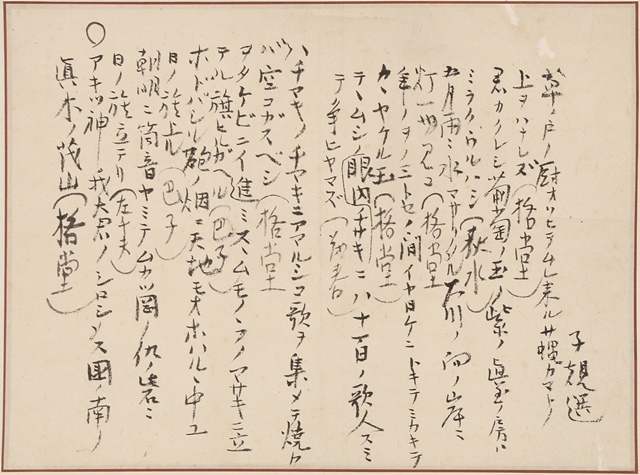 子規選
草ノ戸ノ厨オヒテムレ来ルサ蠅カマトノ
上ヲハナレズ（格堂）
君カクレシ葡萄ノ玉ノ紫ノ眞玉ノ房ハ
ミラクウルハシ（萩水）
五月雨ニ水マサリタル石川ノ向ノ岸ニ
灯一ツ（格堂）
年ノヲノ三トセノ間イヤヨケニトキテミカキテ
カヽヤケル玉（格堂）
テヽムシノ眼内チサキニ八十一日ノ歌人スミ
テ争ヒヤマズ
ハチマキノチマキニアマルシコ歌ヲ集メテ焼カ
バ空コガスベシ（格堂）
ヲタケビニイ進ミスヽムモノヽフノマサキニ立
テル旗ヒルガヘル（巴子）
ホドバシル砲ノ烟ニ天地モオホハルヽ中ユ
日ノ旗上ル（巴子）
朝明ニ筒音ヤミテムカツ岡ノ仇ノ岩ニ
日ノ旗立テリ（左千夫）
〇アキツ神我大君ノシロシメス國ノ南ノ
眞木ノ茂山（格堂）